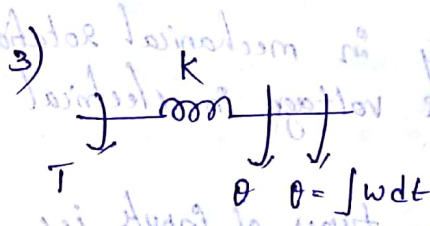 3)
K
T θ θ = ∫ω dt